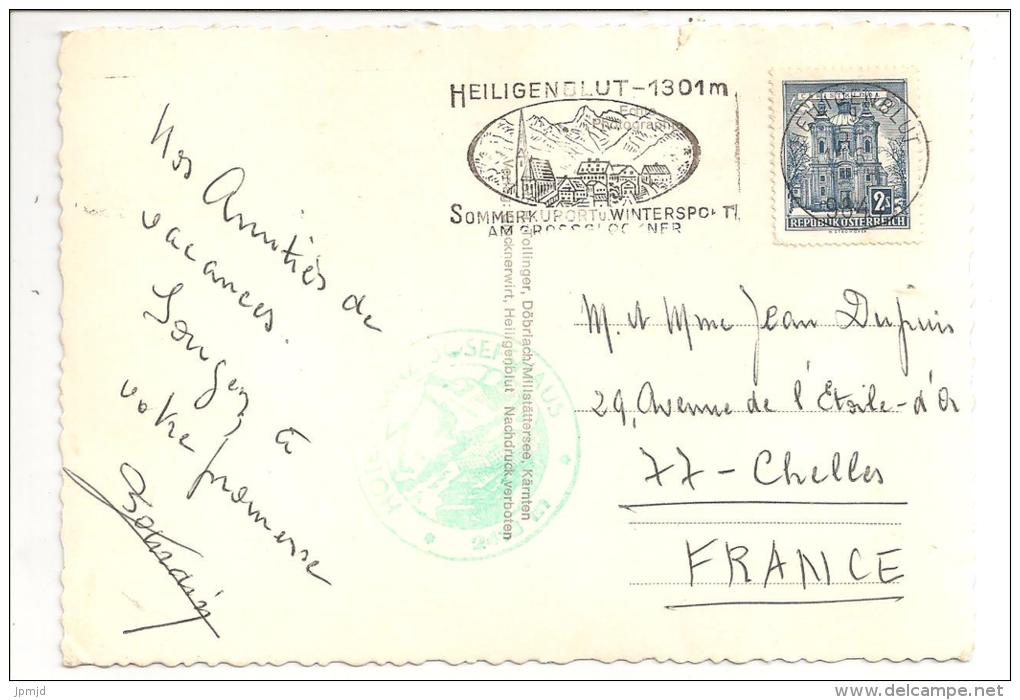 HEILIGENBLUT - 1301m
Echte
Photographie
SOMMERKURORT u. WINTERSPORT
AM GROSSGLOCKNER
HEILIGENBLUT
2S
REPUBLIK ÖSTERREICH
Nos Amitiés de
vacances.
Songez à
votre promesse
M. et Mme Jean Dupuis
29, Avenue de l'Étoile-d'Or
77 - Chelles
FRANCE
Tollinger, Döbriach/Millstättersee, Kärnten
Heiligenblut Nachdruck verboten
jpmjd
delcampe.net